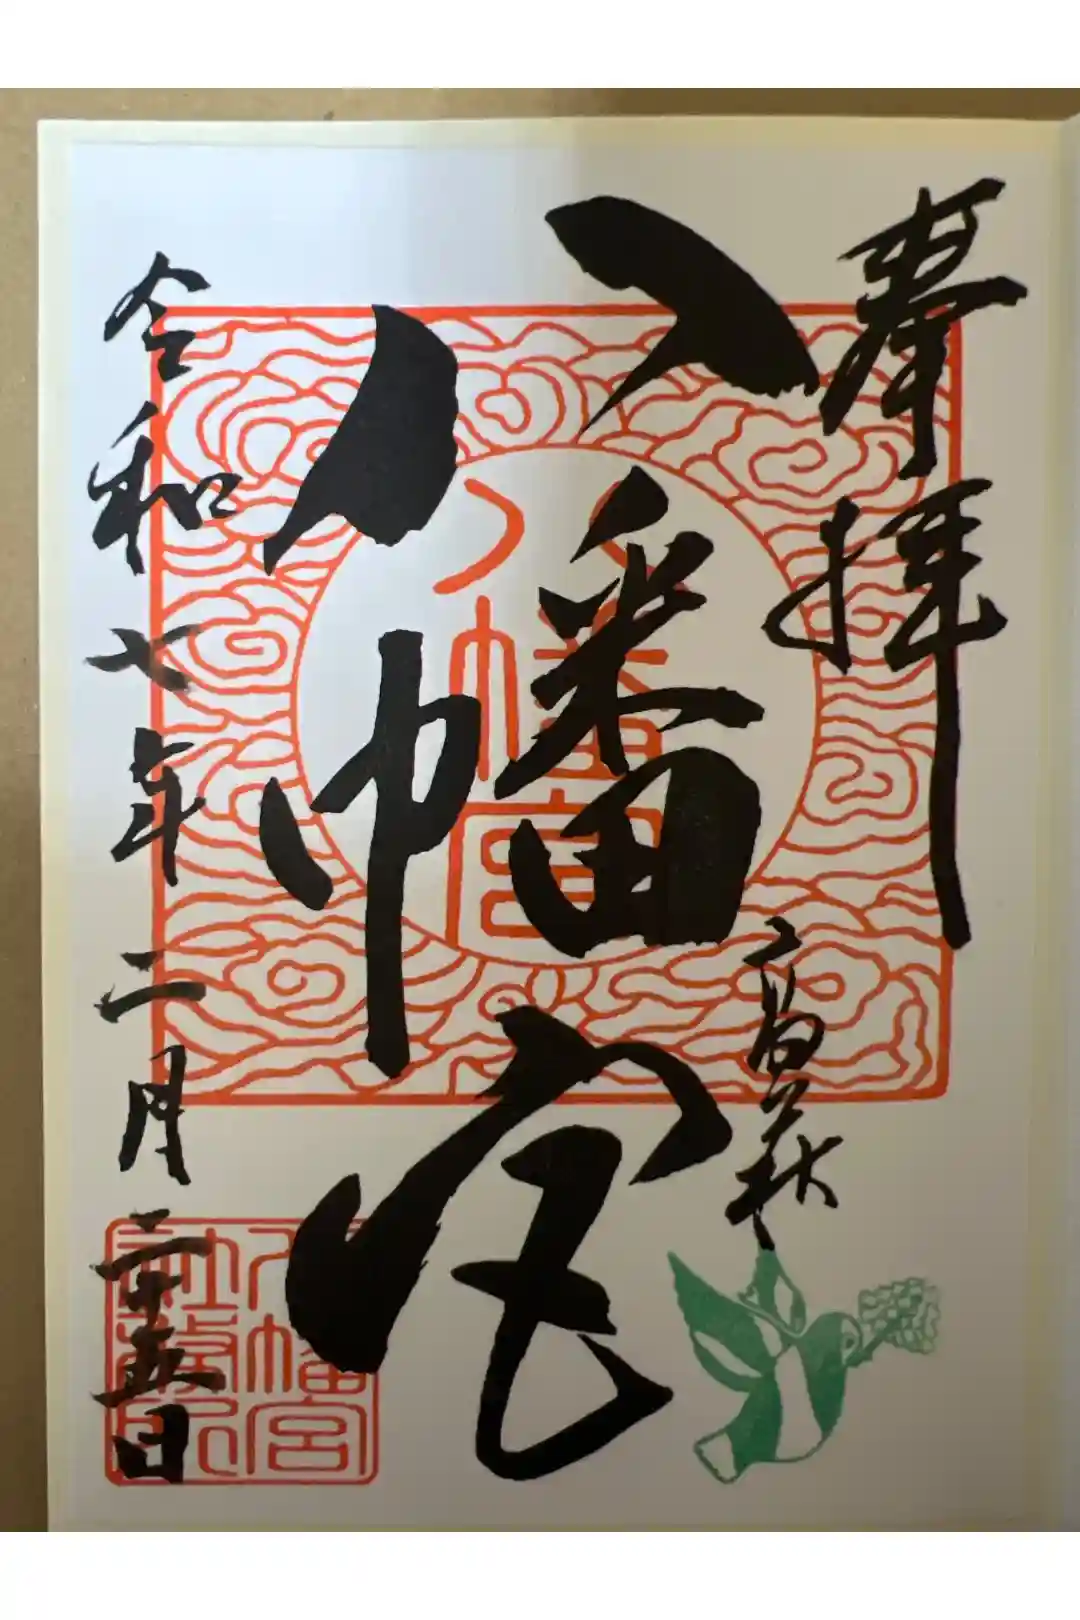 奉拝
高萩
八幡宮
八幡宮
令和七年二月二十五日
八幡宮
社務所印